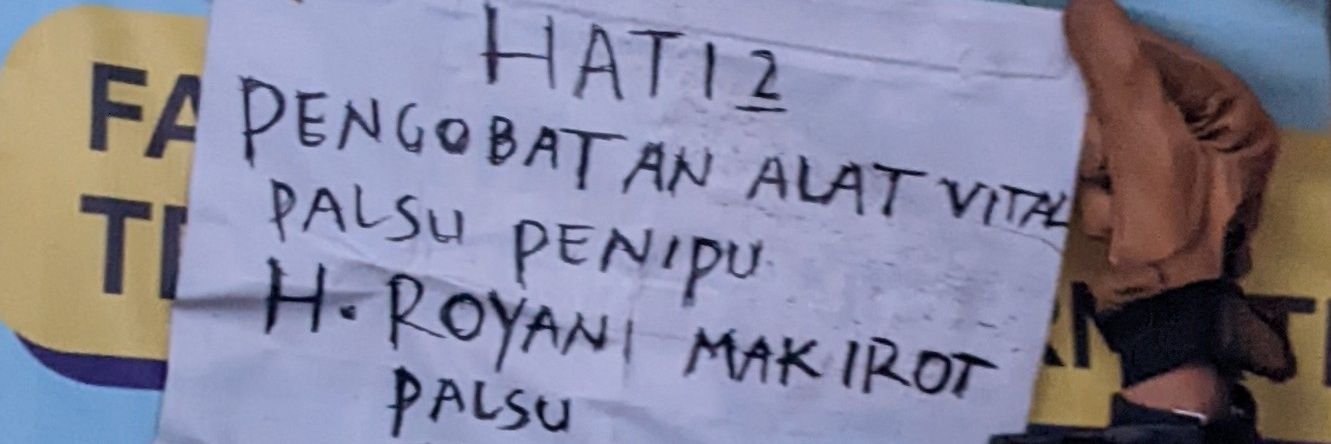 HATI2
PENGOBATAN ALAT VITAL
PALSU PENIPU
H. ROYANI MAKIROT
PALSU
FA